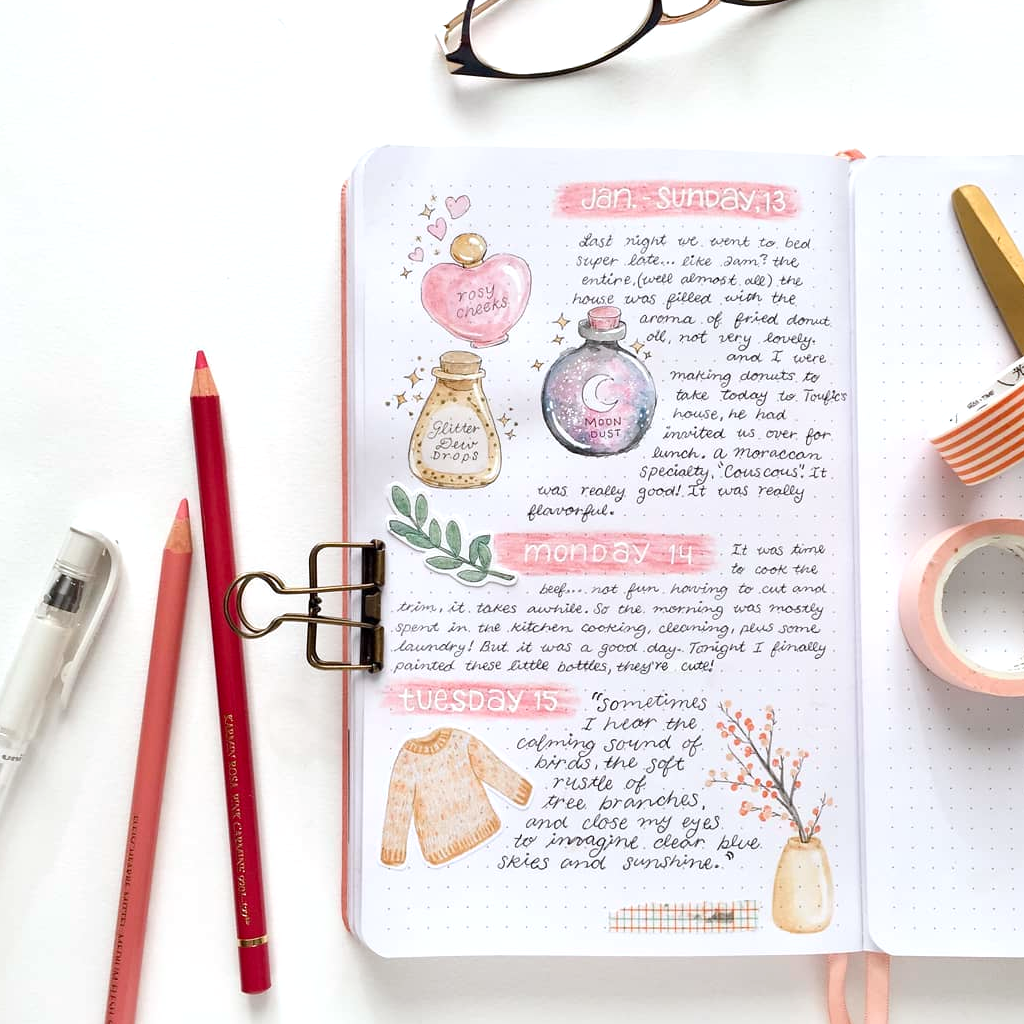 Jan. - Sunday, 13
Last night we went to bed
super late... like 2am? the
entire, (well almost all) the
house was filled with the
aroma of fried donut
oil, not very lovely.
and I were
making donuts to
take today to Toufic's
house, he had
invited us over for
lunch. A moroccan
specialty, "Couscous". It
was really good! It was really
flavorful.
rosy
cheeks
Glitter
Dew
Drops
MOON
DUST
monday 14
It was time
to cook the
beef... not fun having to cut and
trim, it takes awhile. So the morning was mostly
spent in the kitchen cooking, cleaning, plus some
laundry! But it was a good day. Tonight I finally
painted these little bottles, they're cute!
tuesday 15
"Sometimes
I hear the
calming sound of
birds, the soft
rustle of
tree branches,
and close my eyes
to imagine clear blue
skies and sunshine."